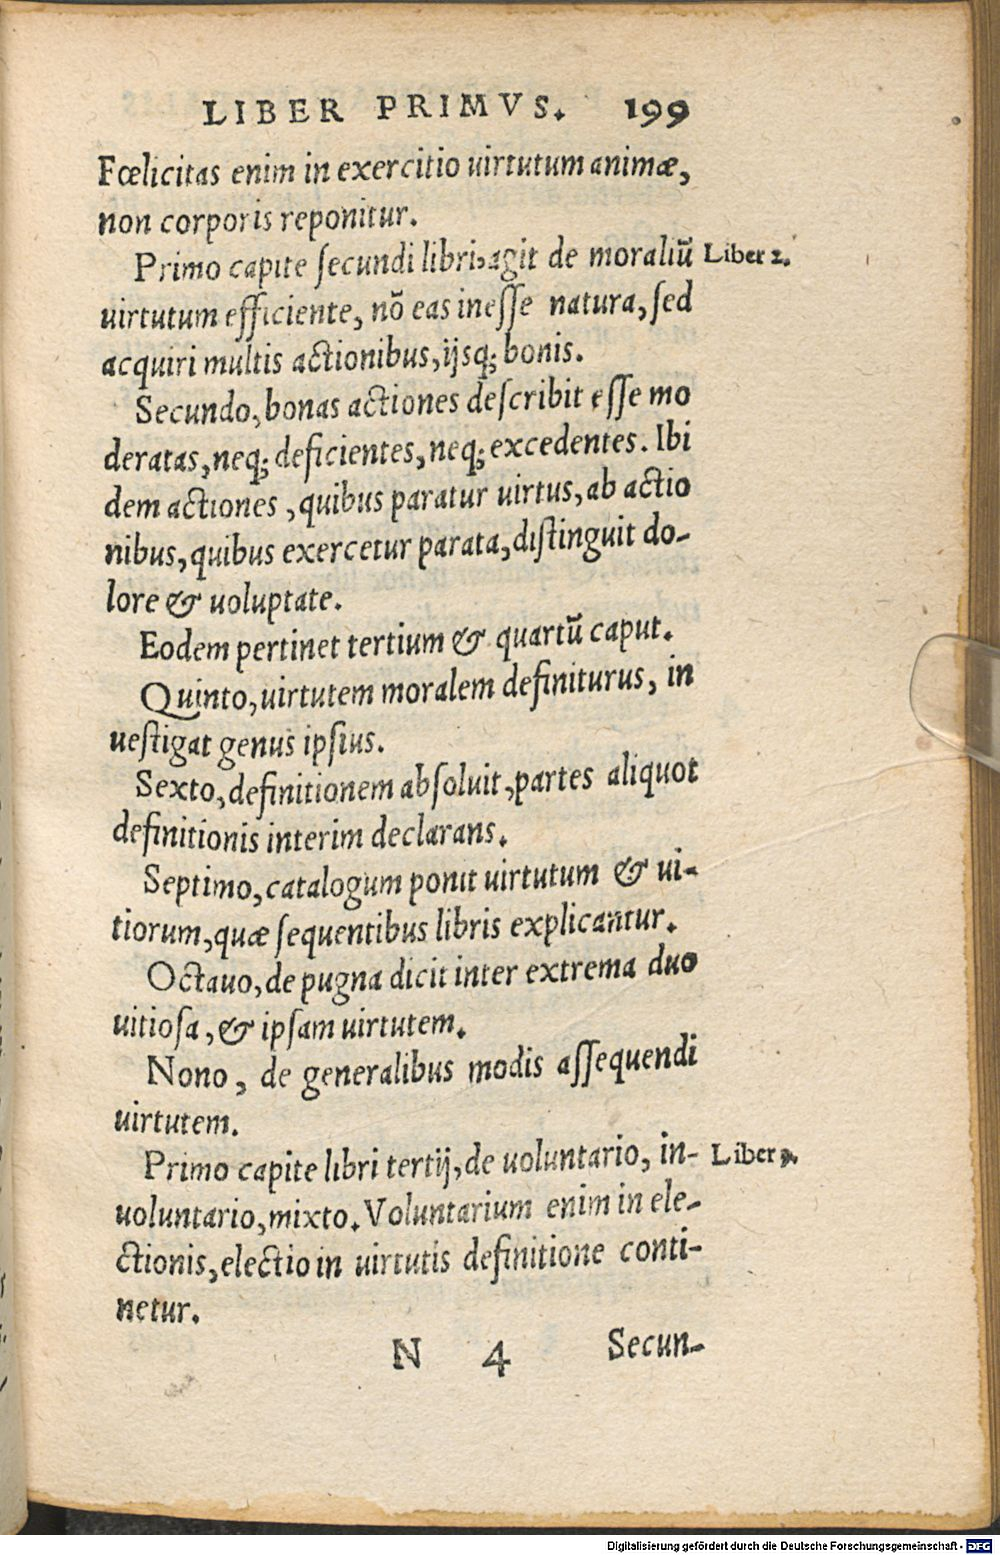 LIBER PRIMVS. 199
Fœlicitas enim in exercitio uirtutum animæ,
non corporis reponitur.
Primo capite ſecundi libri, agit de moraliũ Liber 2.
uirtutum efficiente, nõ eas ineſſe natura, ſed
acquiri multis actionibus, ijsq; bonis.
Secundo, bonas actiones deſcribit eſſe mo
deratas, neq; deficientes, neq; excedentes. Ibi
dem actiones, quibus paratur uirtus, ab actio
nibus, quibus exercetur parata, diſtinguit do-
lore & uoluptate.
Eodem pertinet tertium & quartũ caput.
Quinto, uirtutem moralem definiturus, in
ueſtigat genus ipſius.
Sexto, definitionem abſoluit, partes aliquot
definitionis interim declarans.
Septimo, catalogum ponit uirtutum & ui-
tiorum, quæ ſequentibus libris explicantur.
Octauo, de pugna dicit inter extrema duo
uitioſa, & ipſam uirtutem.
Nono, de generalibus modis aſſequendi
uirtutem.
Primo capite libri tertij, de uoluntario, in- Liber 3.
uoluntario, mixto. Voluntarium enim in ele-
ctionis, electio in uirtutis definitione conti-
netur.
N 4 Secun-
Digitalisierung gefördert durch die Deutsche Forschungsgemeinschaft - DFG